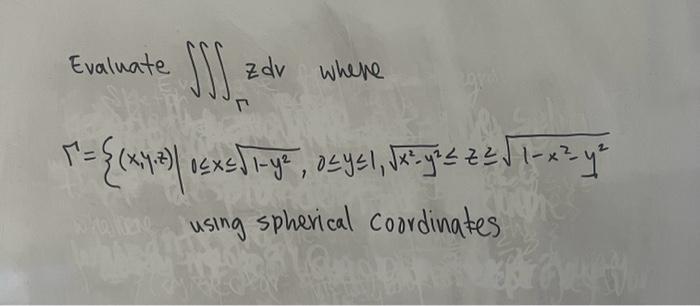 Evaluate ∭_Γ zdv where
Γ={(x,y,z)| 0≤x≤√1-y², 0≤y≤1, √x²-y² ≤ z ≥ √1-x²-y²
using spherical coordinates